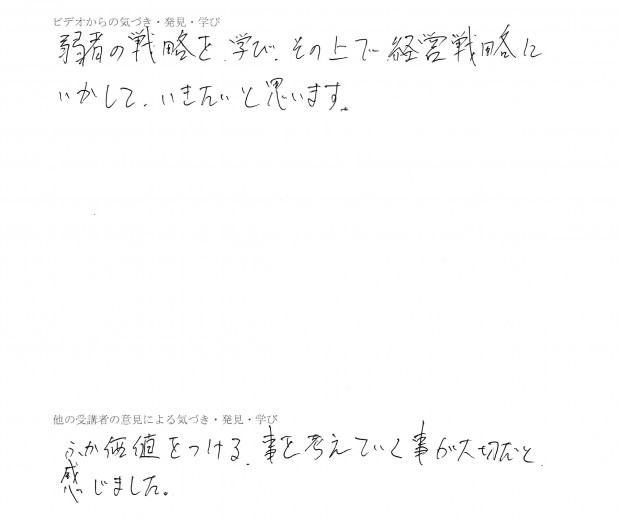 ビデオからの気づき・発見・学び
弱者の戦略を、学び、その上で、経営戦略に
いかして、いきたいと思います。
他の受講者の意見による気づき・発見・学び
ふか価値をつける、事を考えていく事が大切だと、
感じました。